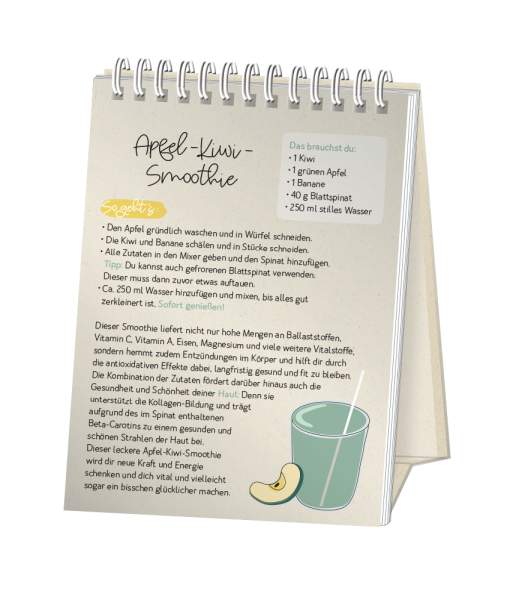 Apfel-Kiwi-
Smoothie
Das brauchst du:
• 1 Kiwi
• 1 grünen Apfel
• 1 Banane
• 40 g Blattspinat
• 250 ml stilles Wasser
So geht's:
• Den Apfel gründlich waschen und in Würfel schneiden.
• Die Kiwi und Banane schälen und in Stücke schneiden.
• Alle Zutaten in den Mixer geben und den Spinat hinzufügen.
Tipp: Du kannst auch gefrorenen Blattspinat verwenden.
Dieser muss dann zuvor etwas auftauen.
• Ca. 250 ml Wasser hinzufügen und mixen, bis alles gut
zerkleinert ist. Sofort genießen!
Dieser Smoothie liefert nicht nur hohe Mengen an Ballaststoffen,
Vitamin C, Vitamin A, Eisen, Magnesium und viele weitere Vitalstoffe,
sondern hemmt zudem Entzündungen im Körper und hilft dir durch
die antioxidativen Effekte dabei, langfristig gesund und fit zu bleiben.
Die Kombination der Zutaten fördert darüber hinaus auch die
Gesundheit und Schönheit deiner Haut: Denn sie
unterstützt die Kollagen-Bildung und trägt
aufgrund des im Spinat enthaltenen
Beta-Carotins zu einem gesunden und
schönen Strahlen der Haut bei.
Dieser leckere Apfel-Kiwi-Smoothie
wird dir neue Kraft und Energie
schenken und dich vital und vielleicht
sogar ein bisschen glücklicher machen.